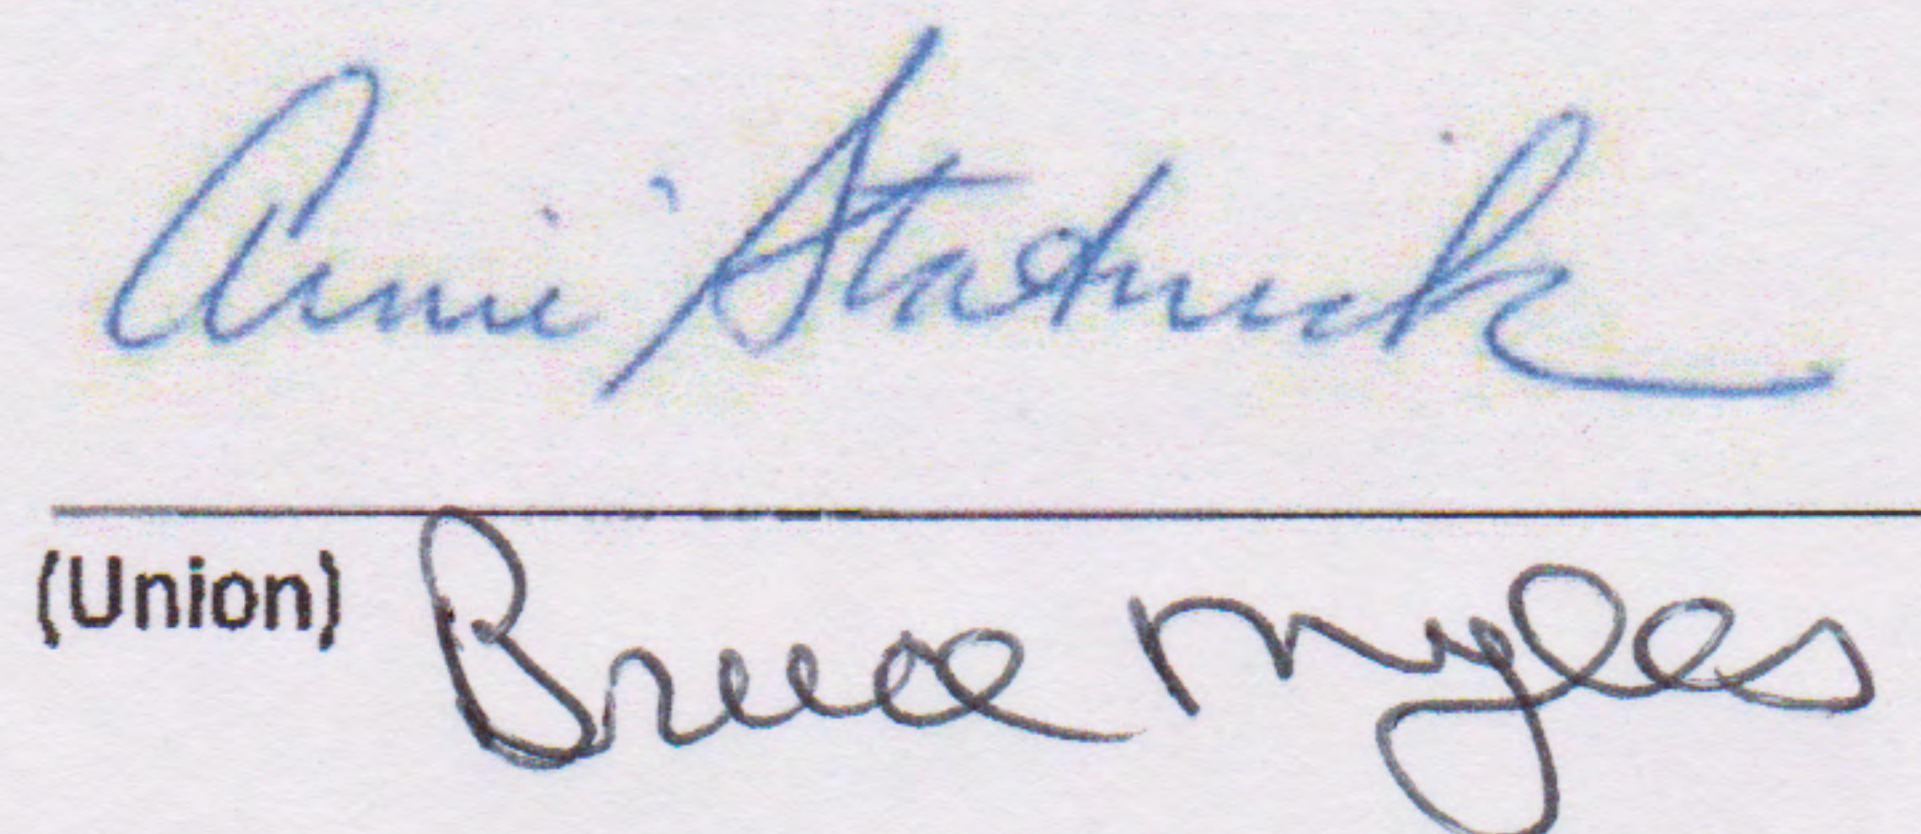 Annie Stadnick
(Union) Bruce Myles